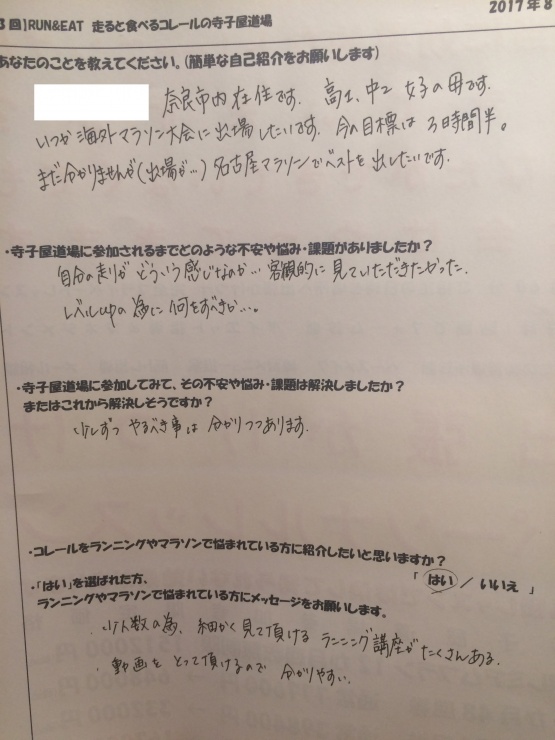 2017年8
3回】RUN&EAT 走ると食べるコレールの寺子屋道場
あなたのことを教えてください。(簡単な自己紹介をお願いします)
奈良市内在住です。高2、中2 女子の母です。
いつか海外マラソン大会に出場したいです。今の目標は3時間半。
まだ分かりませんが(出場が…)名古屋マラソンでベストを出したいです。
・寺子屋道場に参加されるまでどのような不安や悩み・課題がありましたか?
自分の走りがどういう感じなのか…客観的に見ていただきたかった。
レベルupの為に何をすべきか…。
・寺子屋道場に参加してみて、その不安や悩み・課題は解決しましたか?
またはこれから解決しそうですか?
少しずつ やるべき事は 分かりつつあります。
・コレールをランニングやマラソンで悩まれている方に紹介したいと思いますか?
「 はい / いいえ 」
・「はい」を選ばれた方、
ランニングやマラソンで悩まれている方にメッセージをお願いします。
・少人数の為、細かく見て頂ける ランニング講座がたくさんある。
・動画をとって頂けるので 分かりやすい。